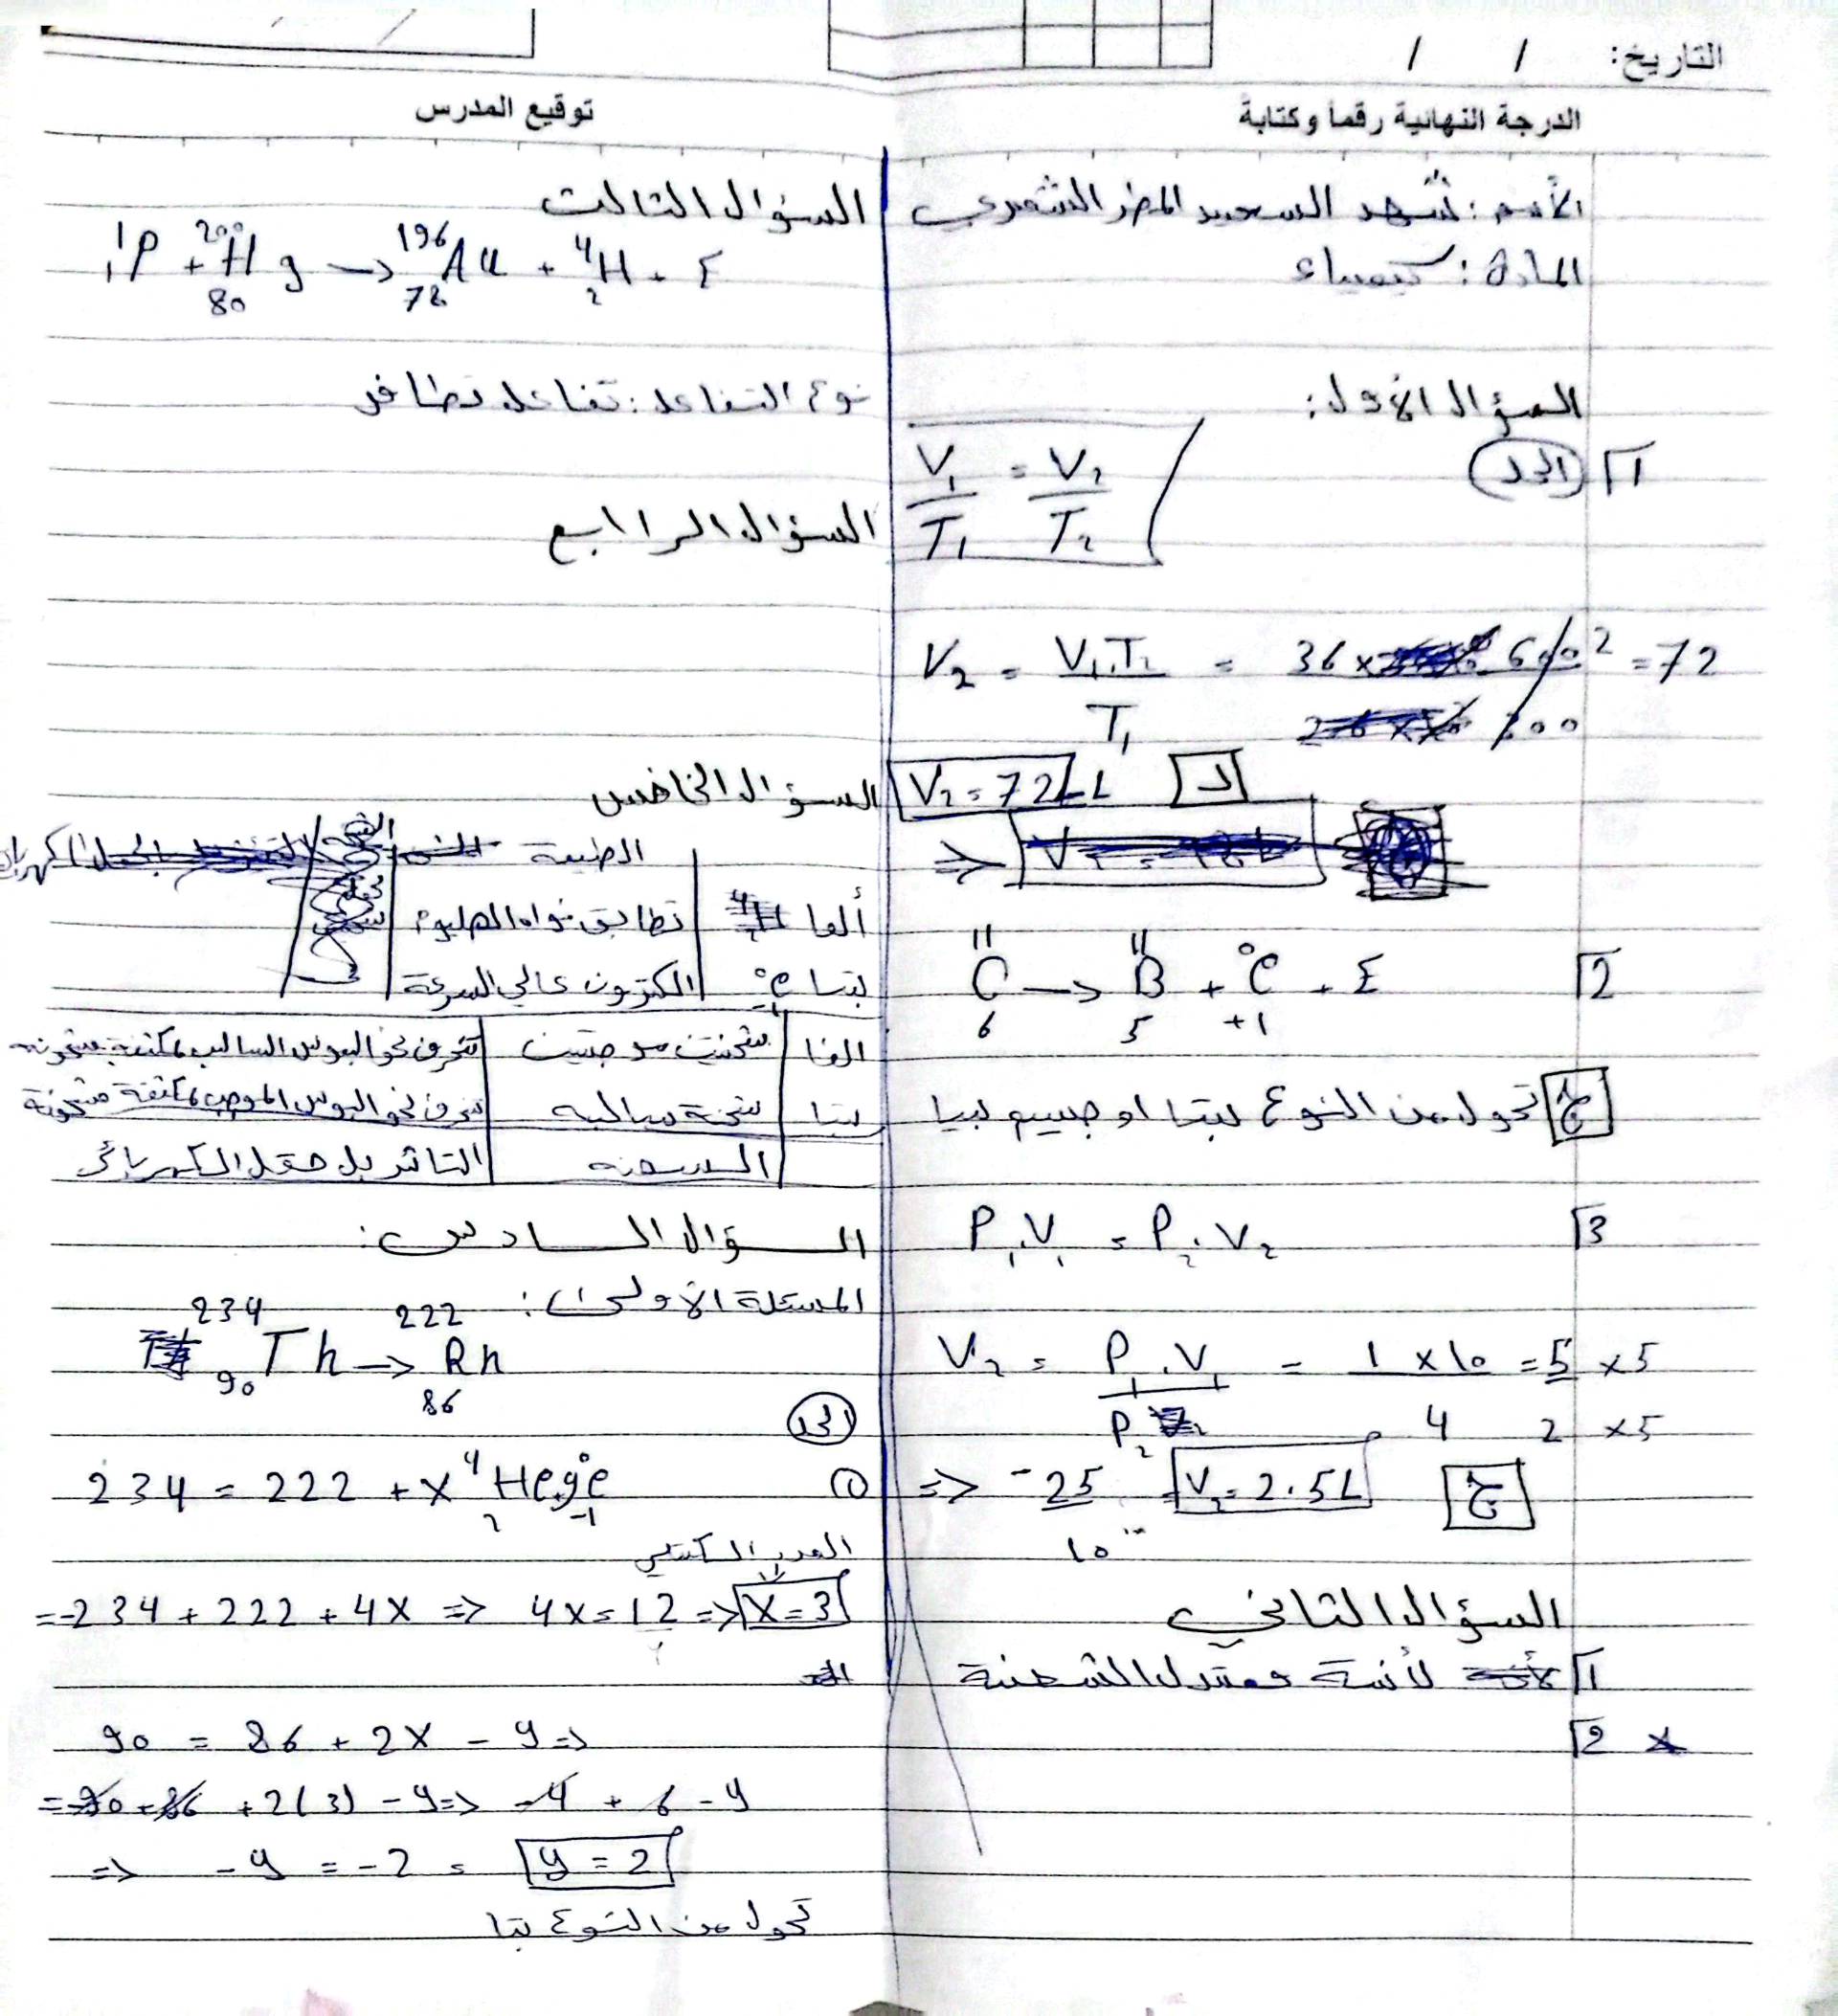 التاريخ: / /
الدرجة النهائية رقماً وكتابة
الأسم: شهد السعيد المطر الشمري
المادة: كيمياء
السؤال الأول:
1 الحل
V1/T1 = V2/T2
V2 = V1.T2/T1 = 36 × 600 2 / 300 = 72
V2 = 72 L د
⇒
2 11 6 C → 11 5 B + 0 +1 e + E
ج تحول من النوع بيتا او جسيم بيتا
3 P1.V1 = P2.V2
V2 = P1.V1/P2 = 1 × 10/4 = 5/2 ×5 ×5
⇒ 25/10 = V2 = 2.5L ج
السؤال الثاني
1 لأنة معتدل الشحنة
2
توقيع المدرس
السؤال الثالت
1 1 P + 200 80 Hg → 196 78 Au + 4 2 H + E
نوع التفاعل: تفاعل تطافر
السؤال الراابع
السؤال الخامس
الطبيعة
ألفا تطابق نواه الهليوم
بيتا 0 -1 e الكترون عالي السرعة
الفا شحنتين موجبتين تنحرف نحو البوس السالب لمكثفة مشحونه
بيتا شحنة سالبه تنحرف نحو البوس الموجب لمكثفة مشحونة
الشحنه التاثر بل حقل الكهربائي
السؤال السادس:
المسئلة الأولى:
234 90 Th → 222 86 Rn
الحل
① 234 = 222 + x 4 2 He + y 0 -1 e
العدد الكتلي
= -234 + 222 + 4x ⇒ 4x = 12 ⇒ x = 3
90 = 86 + 2x - y ⇒
= -90 + 86 + 2(3) - y ⇒ -4 + 6 - y
⇒ -y = -2 = y = 2
تحول من النوع بتا